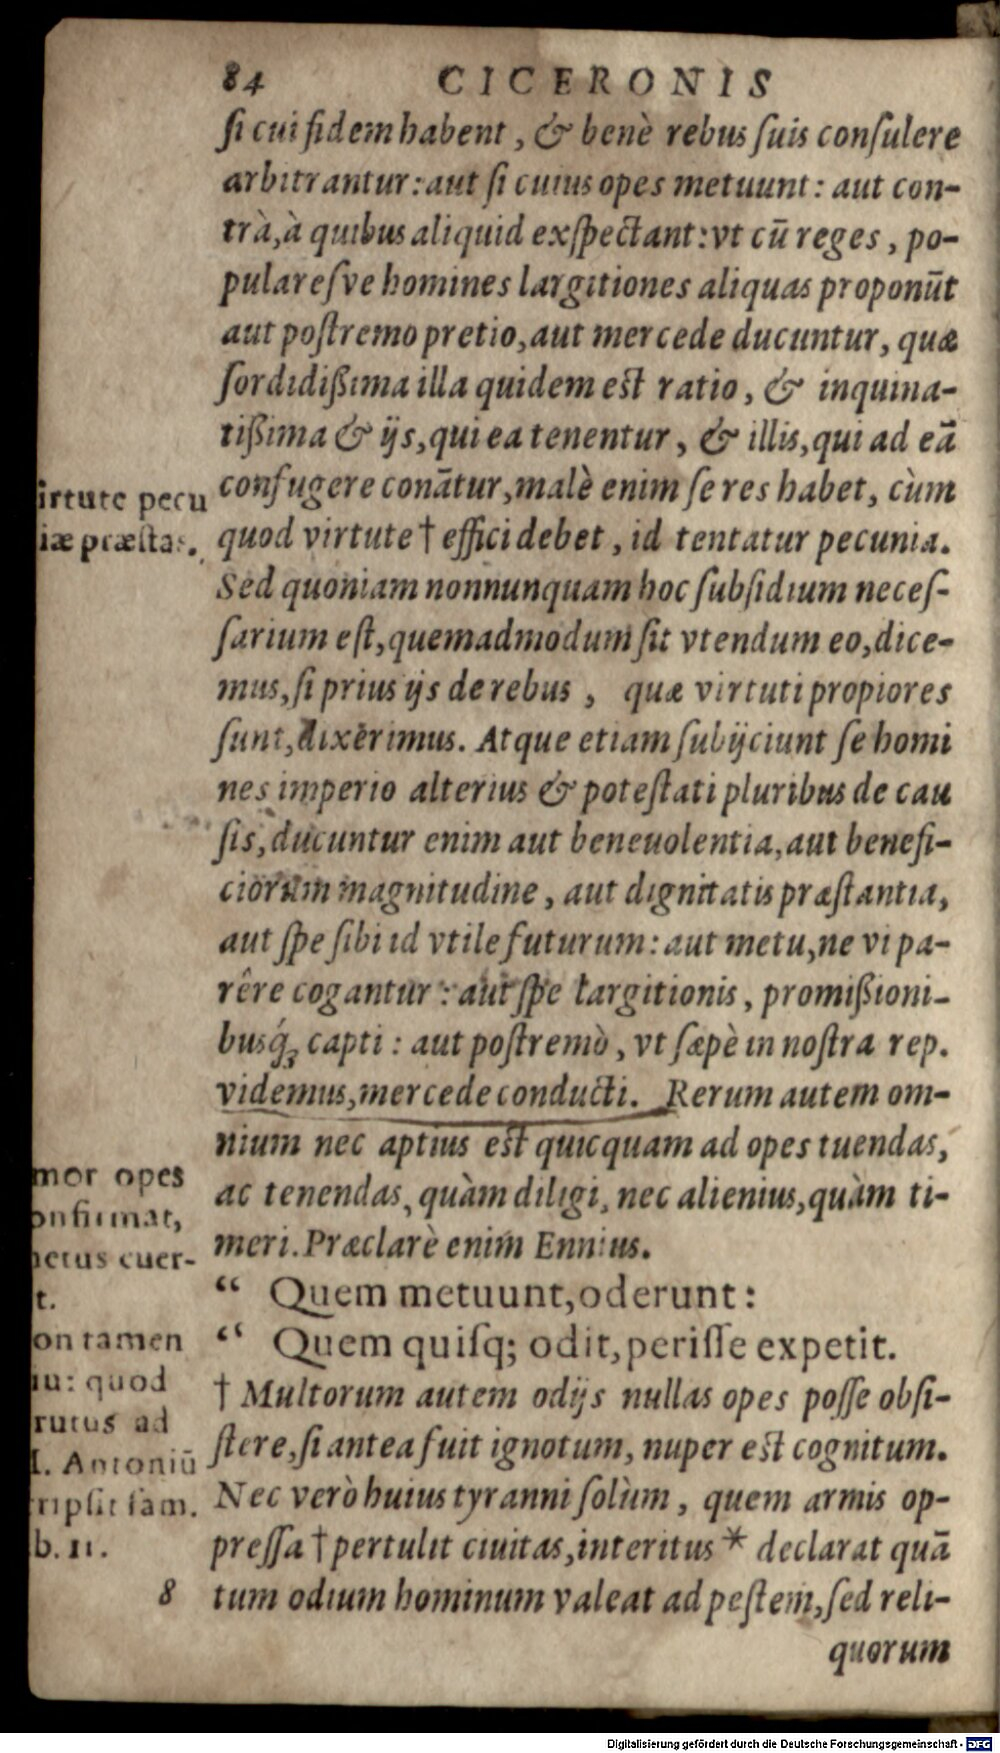 84 CICERONIS
ſi cui fidem habent, & benè rebus ſuis conſulere
arbitrantur: aut ſi cuius opes metuunt: aut con-
trà, à quibus aliquid exſpectant: vt cū reges, po-
pulareſve homines largitiones aliquas proponūt
aut poſtremo pretio, aut mercede ducuntur, quæ
ſordidißima illa quidem est ratio, & inquina-
tißima & ijs, qui ea tenentur, & illis, qui ad eā
confugere conātur, malè enim ſe res habet, cùm
quod virtute † effici debet, id tentatur pecunia.
Sed quoniam nonnunquam hoc ſubſidium neceſ-
ſarium eſt, quemadmodum ſit vtendum eo, dice-
mus, ſi prius ijs de rebus, quæ virtuti propiores
ſunt, dixerimus. Atque etiam ſubijciunt ſe homi
nes imperio alterius & poteſtati pluribus de cau
ſis, ducuntur enim aut beneuolentia, aut benefi-
ciorum magnitudine, aut dignitatis præſtantia,
aut ſpe ſibi id vtile futurum: aut metu, ne vi pa-
rêre cogantur: aut ſpe largitionis, promißioni-
busq́; capti: aut poſtremò, vt ſæpè in noſtra rep.
videmus, mercede conducti. Rerum autem om-
nium nec aptius est quicquam ad opes tuendas,
ac tenendas, quàm diligi, nec alienius, quàm ti-
meri. Præclarè enim Ennius.
“ Quem metuunt, oderunt:
“ Quem quiſq; odit, periſſe expetit.
† Multorum autem odijs nullas opes poſſe obſi-
ſtere, ſi antea fuit ignotum, nuper est cognitum.
Nec verò huius tyranni ſolùm, quem armis op-
preſſa † pertulit ciuitas, interitus * declarat quā
tum odium hominum valeat ad peſtem, ſed reli-
quorum
irtute pecu
iæ præſtat.
mor opes
onfirmat,
netus euer-
t.
on tamen
iu: quod
rutus ad
I. Antoniū
ripſit fam.
b. 11.
8
Digitalisierung gefördert durch die Deutsche Forschungsgemeinschaft - DFG